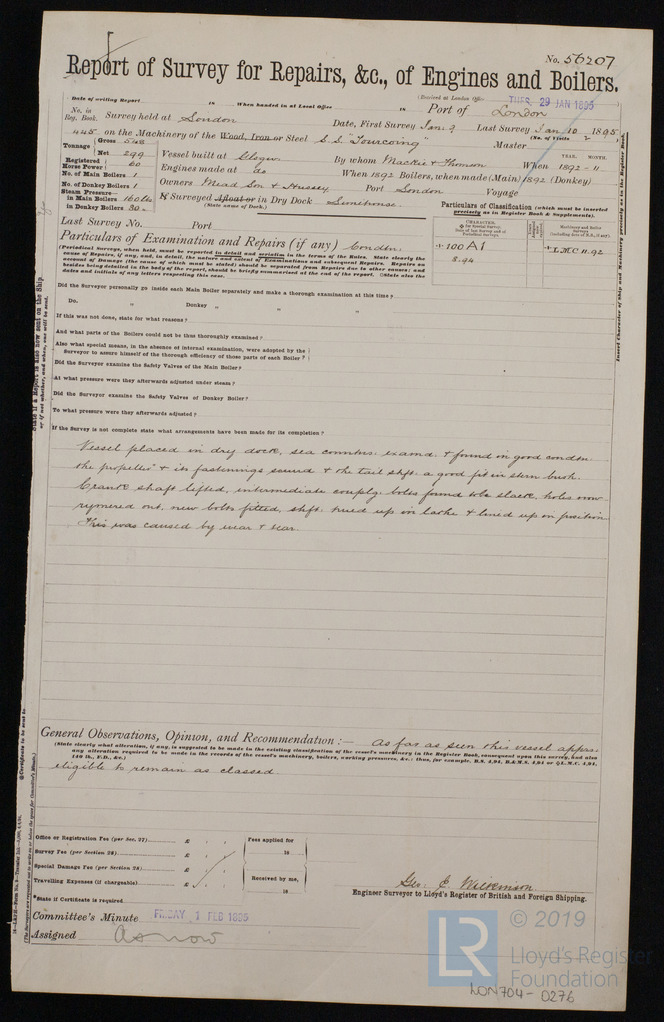 No. 56207
Report of Survey for Repairs, &c., of Engines and Boilers.
(Received at London Office TUES. 29 JAN 1895
Date of writing Report 18 When handed in at Local Office 18 Port of London
No. in Reg. Book. Survey held at London Date, First Survey Jan 9 Last Survey Jan 10 1895
(No. of Visits 2)
445 on the Machinery of the Wood, Iron or Steel S.S. "Tourcoing" Master
Tonnage Gross 548
Net 299
Vessel built at Glasgow By whom Mackie & Thomson When 1892 - 11
YEAR. MONTH.
Registered Horse Power 60
Engines made at do When 1892 Boilers, when made (Main) 1892 (Donkey)
No. of Main Boilers 1
No. of Donkey Boilers 1
Owners Mead Son & Hussey Port London Voyage
Steam Pressure— in Main Boilers 160 lbs
in Donkey Boilers 80
If Surveyed Afloat or in Dry Dock Limehouse.
(State name of Dock.)
Particulars of Classification (which must be inserted precisely as in Register Book & Supplements).
Last Survey No. Port
CHARACTER.
+100 A1
8.94
+LMC 11.92
Particulars of Examination and Repairs (if any) Condtn.
(Periodical Surveys, when held, must be reported in detail and seriatim in the terms of the Rules. State clearly the
cause of Repairs, if any, and, in detail, the nature and extent of Examinations and subsequent Repairs. Repairs on
account of Damage (the cause of which must be stated) should be separated from Repairs due to other causes; and
besides being detailed in the body of the report, should be briefly summarised at the end of the report. State also the
dates and initials of any letters respecting this case.
Did the Surveyor personally go inside each Main Boiler separately and make a thorough examination at this time?
Do. " Donkey " " "
If this was not done, state for what reasons?
And what parts of the Boilers could not be thus thoroughly examined?
Also what special means, in the absence of internal examination, were adopted by the
Surveyor to assure himself of the thorough efficiency of those parts of each Boiler?
Did the Surveyor examine the Safety Valves of the Main Boiler?
At what pressure were they afterwards adjusted under steam?
Did the Surveyor examine the Safety Valves of Donkey Boiler?
To what pressure were they afterwards adjusted?
If the Survey is not complete state what arrangements have been made for its completion?
Vessel placed in dry dock, sea connectns. examd. & found in good condtn
the propeller & its fastenings sound & the tail shft. a good fit in stern bush.
Crank shaft lifted, intermediate couplg. bolts found to be slack, holes now
rymered out, new bolts fitted, shft. trued up in lathe & lined up in position
This was caused by wear & tear.
General Observations, Opinion, and Recommendation:— As far as seen this vessel appears
(State clearly what alteration, if any, is suggested to be made in the existing classification of the vessel's machinery in the Register Book, consequent upon this survey, and also
any alteration required to be made in the records of the vessel's machinery, boilers, working pressures, &c.: thus, for example, B.S. 4,94, B.&M.S. 4,94 or L.M.C. 4,94,
140 lb., F.D., &c.)
eligible to remain as classed
Office or Registration Fee (per Sec. 27) £ : :
Survey Fee (per Section 28) £ : :
Special Damage Fee (per Section 28) £ : :
Travelling Expenses (if chargeable) £ : :
Fees applied for
18
Received by me,
18
*State if Certificate is required
Geo. E. Wilkinson
Engineer Surveyor to Lloyd's Register of British and Foreign Shipping.
Committee's Minute FRIDAY 1 FEB 1895
Assigned as now
State if a Report is also now sent on the Ship.
or if not whether, and when, one will be sent.
Insert Character of Ship and Machinery precisely as in the Register Book.
LR
© 2019
Lloyd's Register
Foundation
LON704-0276